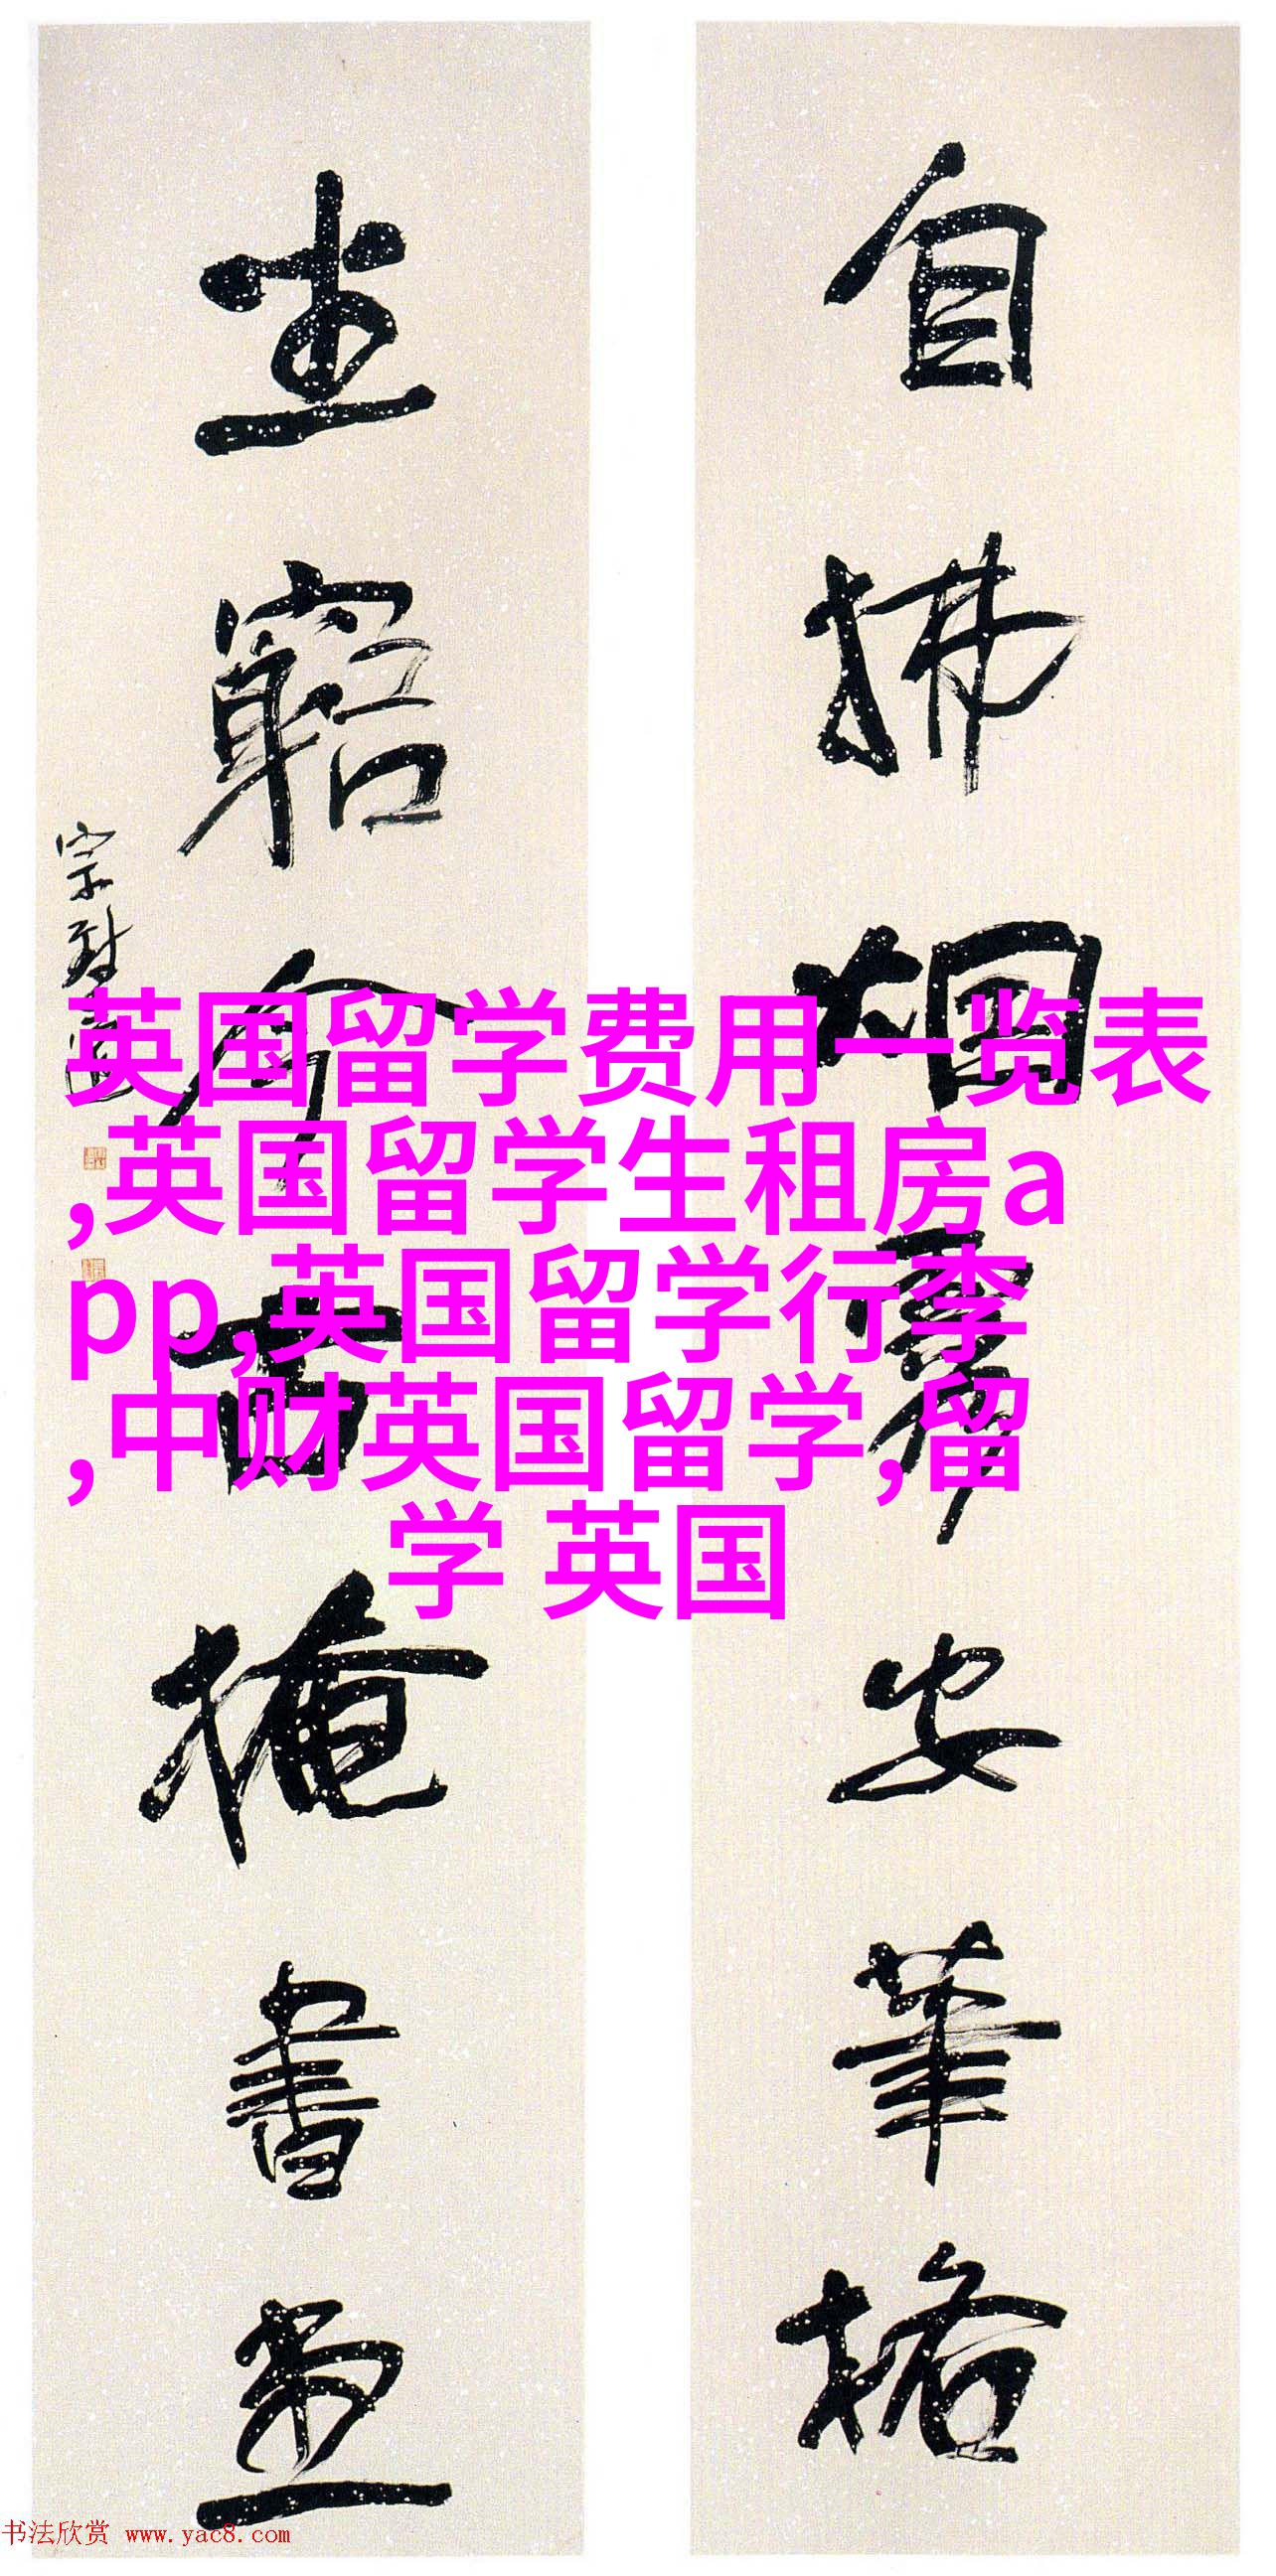 自拂烟霏安筆格
坐窮今古掩書堂
英国留学费用一览表
,英国留学生租房a
pp,英国留学行李
,中财英国留学,留
学 英国
书法欣赏 www.yac8.com